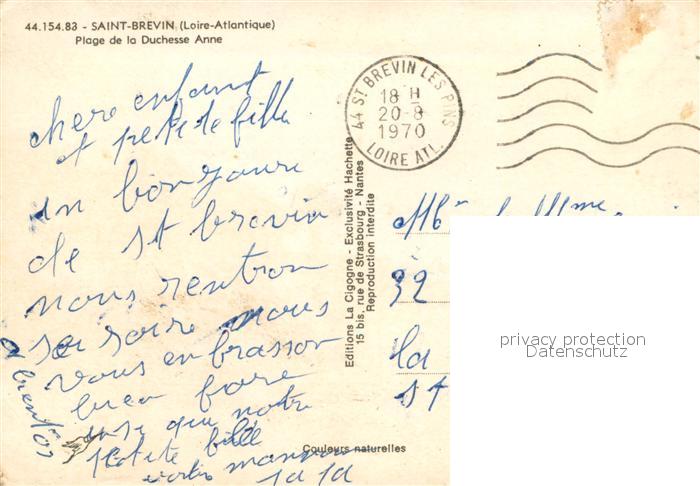 44.154.83 - SAINT-BREVIN (Loire-Atlantique)
Plage de la Duchesse Anne
44 ST BREVIN LES PINS
18 H
20-8
1970
LOIRE ATL.
chere enfant
et petite fille
un bonjoure
de st brevin
nous rentron
se soire nous
vous enbrasson
bien fore
insi que notre
petite fille
votre maman
a bientos
Editions La Cigogne - Exclusivité Hachette
15 bis, rue de Strasbourg - Nantes
Reproduction interdite
Couleurs naturelles
Mr Mme
32
la
st
privacy protection
Datenschutz